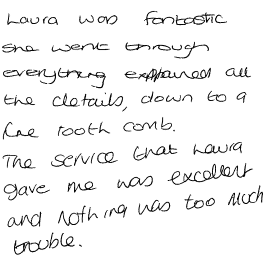 Laura was fantastic
she went through
everything explained all
the details, down to a
fine tooth comb.
The service that Laura
gave me was excellent
and nothing was too much
trouble.